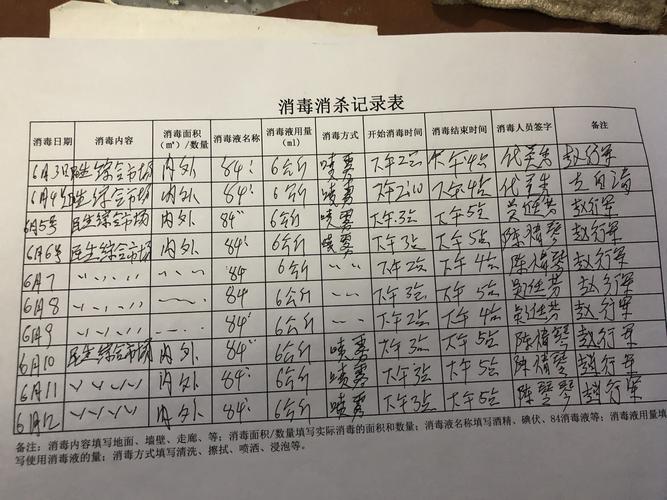 消毒消杀记录表
消毒日期 消毒内容 消毒面积(㎡)/数量 消毒液名称 消毒液用量(ml) 消毒方式 开始消毒时间 消毒结束时间 消毒人员签字 备注
6月3日 民生综合市场 内外 84 6公斤 喷雾 下午2点 下午4点 赵行军
6月4号 民生综合市场 内外 84 6公斤 喷雾 下午2:10 下午4点
6月5号 民生综合市场 内外 84 6公斤 喷雾 下午3点 下午5点 赵行军
6月6号 民生综合市场 内外 84 6公斤 喷雾 下午3点 下午5点 陈倩琴 赵行军
6月7 84 6公斤 下午2点 下午4点 陈倩琴 赵行军
6月8 84 6公斤 下午3点 下午5点 赵行军
6月9 84 6公斤 下午2点 下午4点 赵行军
6月10 民生综合市场 内外 84 6公斤 喷雾 下午3点 下午5点 陈倩琴 赵行军
6月11 内外 84 6公斤 喷雾 下午3点 下午5点 陈倩琴 赵行军
6月12 内外 84 6公斤 喷雾 下午3点 下午5点 赵行军
备注：消毒内容填写地面、墙壁、走廊、等；消毒面积/数量填写实际消毒的面积和数量；消毒液名称填写酒精、碘伏、84消毒液等；消毒液用量填
写使用消毒液的量；消毒方式填写清洗、擦拭、喷洒、浸泡等。